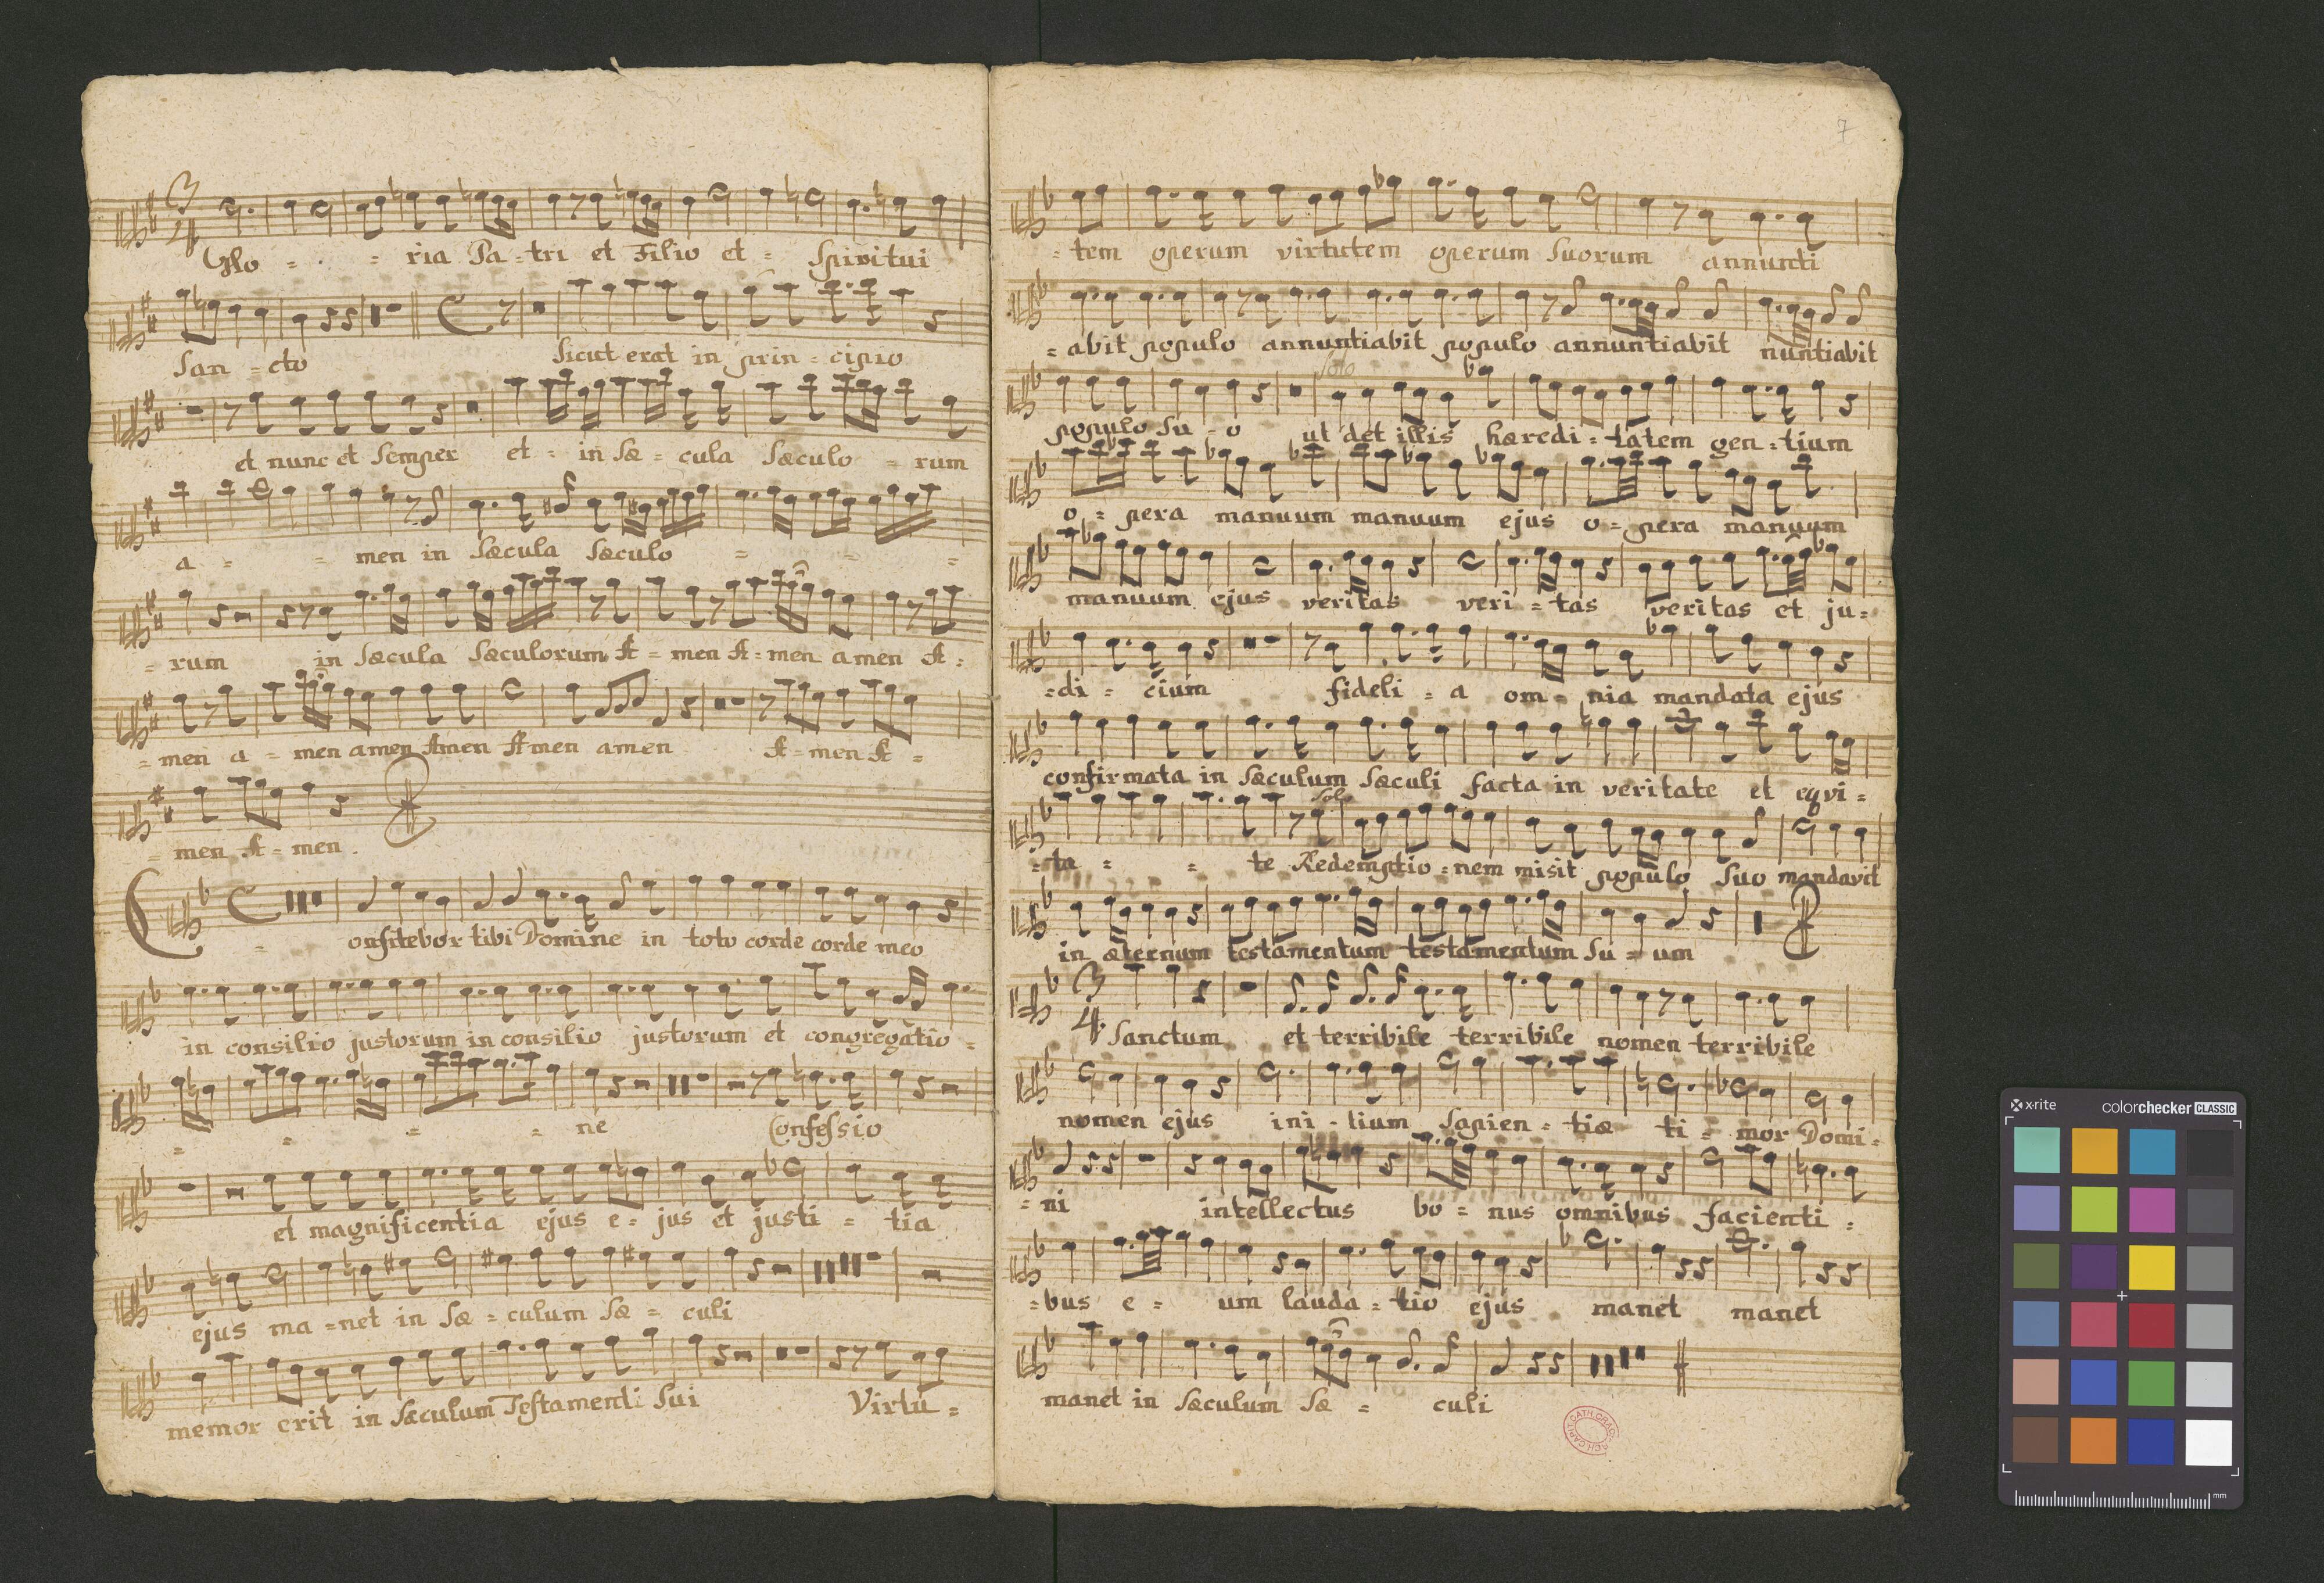 Glo = = ria Pa = tri et Filio et = Spiritui
San = cto Sicut erat in prin = cipio
et nunc et Semper et = in Sæ = cula Sæculo = rum
a = = men in Sæcula Sæculo = = =
= rum in Sæcula Sæculorum A = men A = men amen A =
= men a = men amen Amen Amen amen A = men A =
= men A = men.
Confitebor tibi Domine in toto corde corde meo
in consilio justorum in consilio justorum et congregatio =
= = = = ne Confessio
et magnificentia ejus e = jus et justi = tia
ejus ma = net in Sæ = culum Sæ = culi
memor erit in Sæculum Testamenti Sui Virtu =
7
= tem operum virtutem operum Suorum annunti
= abit populo annuntiabit populo annuntiabit nuntiabit
Solo
populo Su = o ut det illis hæredi = tatem gen = tium
o = pera manuum manuum ejus o = pera manuum
manuum ejus veritas veri = tas veritas et ju =
= di = cium fideli = a om = nia mandata ejus
confirmata in Sæculum Sæculi facta in veritate et eqvi =
Solo
= ta = = te Redemptio = nem misit populo Suo mandavit
in æternum testamentum testamentum Su = um
3/4 Sanctum et terribile terribile nomen terribile
nomen ejus ini = tium Sapien = tiæ ti = mor Domi =
= ni intellectus bo = nus omnibus facienti =
= bus e = um lauda = tio ejus manet manet
manet in Sæculum Sæ = culi
x-rite colorchecker CLASSIC
mm